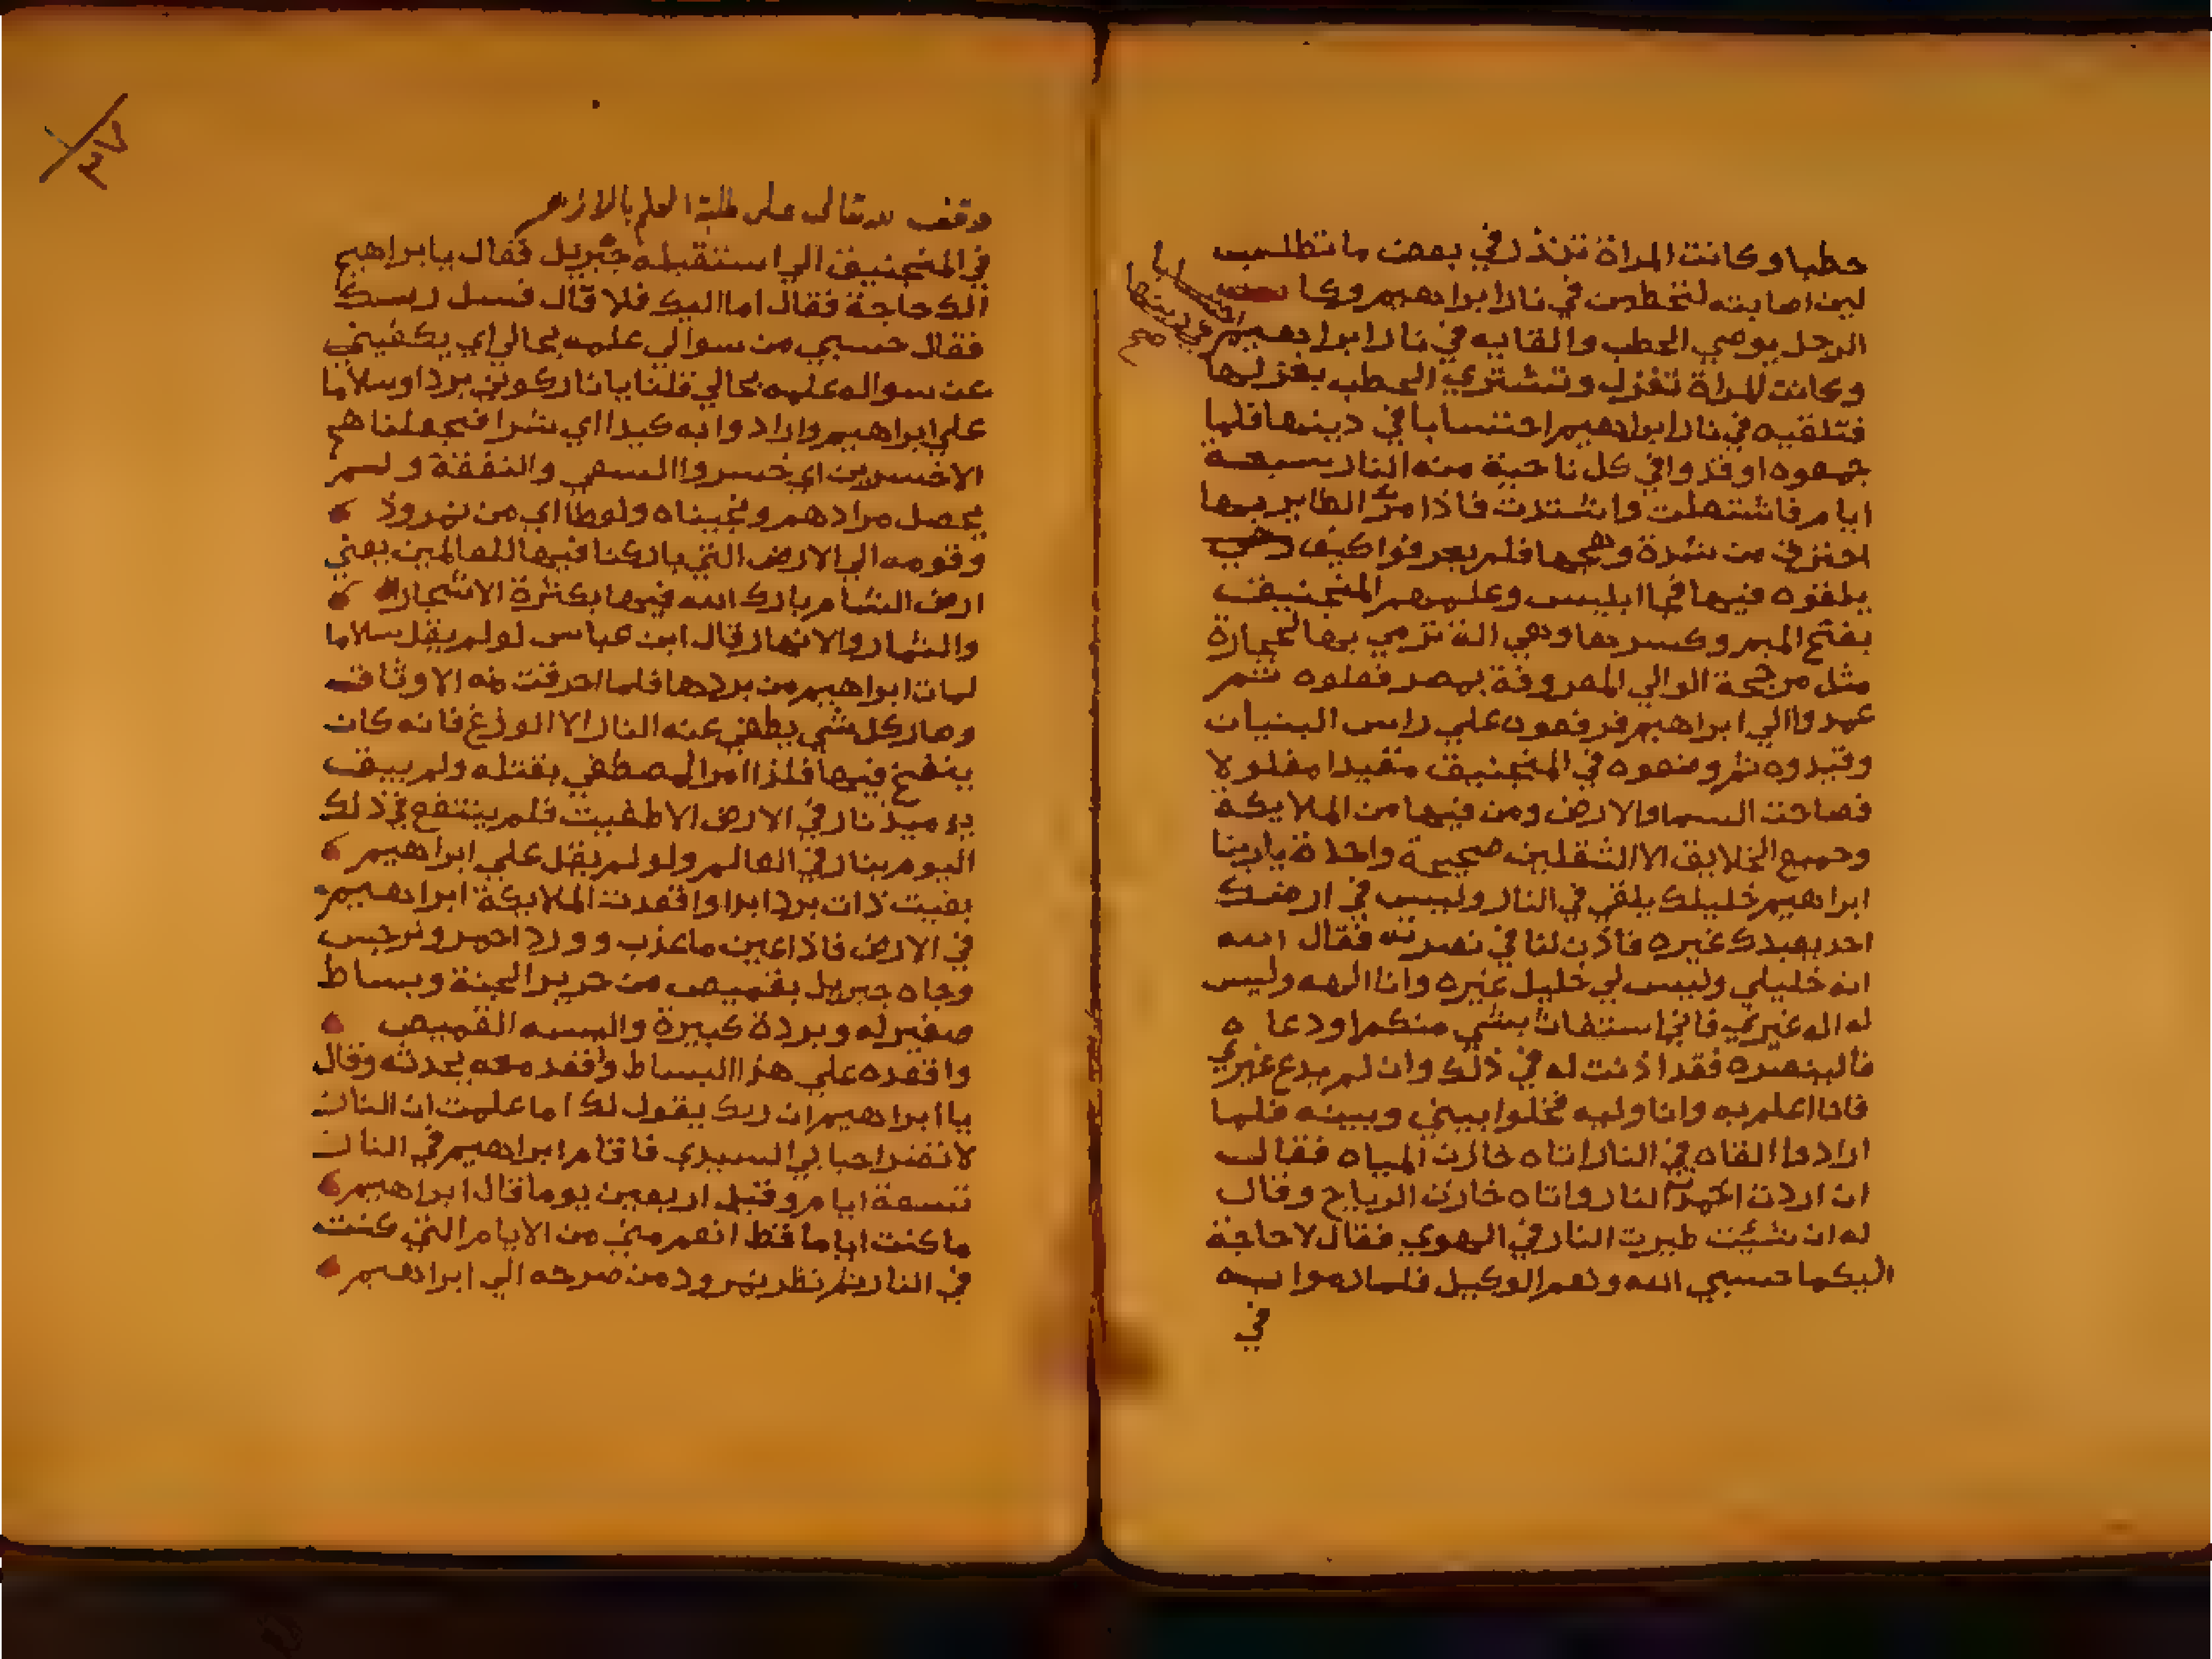 حطبا وكانت المراة تنذر في بعض ما تطلب
لين اصابته لتحطبن في نار ابراهيم وكان
الرجل يوصي الحطب والقايه في نار ابراهيم
وكانت المراة تغزل وتشتري الحطب بغزلها
فتلقيه في نار ابراهيم احتسابا في دينها فلما
جمعوه اوقدوا في كل ناحية منه النار سبعة
ايام فاشتعلت واشتدت فاذا مر الطاير بها
احترق من شدة وهجها فلم يعرفوا كيف
يلقوه فيها فجا ابليس وعلمهم المنجنيق
بفتح الميم وكسرها وهي الة ترمي بها الحجارة
مثل مرجحة الوالي المعروفة بمصر فعلوه ثم
عمدوا الي ابراهيم فرفعوه علي راس البنيان
وقيدوه ثم وضعوه في المنجنيق مقيدا مغلولا
فصاحت السما والارض ومن فيها من الملايكة
وجميع الخلايق الا الثقلين صيحة واحدة ياربنا
ابراهيم خليلك يلقي في النار وليس في ارضك
احد يعبدك غيره فاذن لنا في نصرته فقال الله
انه خليلي وليس لي خليل غيره وانا الهه وليس
له اله غيري فان استغاث بشي منكم اودعا ه
فالينصره فقد اذنت له في ذلك وان لم يدع غيري
فانا اعلم به وانا وليه فخلوا بيني وبينه فلما
ارادوا القاه في النار اتاه خازن المياه فقال
ان اردت اخمدت النار واتاه خازن الرياح وقال
له ان شيت طيرت النار في الهوي فقال لا حاجة
اليكما حسبي الله ونعم الوكيل فلما رموا به
في
احتسابا
في دينها
صح
وقف لله تعالى على طلبة العلم بالازهر
في المنجنيق الي استقبله جبريل فقال يا ابراهيم
الك حاجة فقال اما اليك فلا قال فسل ربك
فقال حسبي من سوالي علمه بحالي اي يكفيني
عن سواله علمه بحالي قلنا يانار كوني بردا وسلاما
علي ابراهيم وارادوا به كيدا اي شرا فجعلناهم
الاخسرين اي خسروا السعي والنفقة ولم
يحصل مرادهم ونجيناه ولوطا اي من نمرود
وقومه الي الارض التي باركنا فيها للعالمين يعني
ارض الشام بارك الله فيها بكثرة الاشجار
والثمار والانهار قال ابن عباس لولم يقل سلاما
لمات ابراهيم من بردها فلما احرقت منه الا وثاقه
وصار كل شي يطفي عنه النار الا الوزغ فانه كان
ينفخ فيها فلذا امر المصطفي بقتله ولم يبق
يوميذ نار في الارض الا طفيت فلم ينتفع في ذلك
اليوم بنار في العالم ولو لم يقل علي ابراهيم
بقيت ذات برد ابدا واقعدت الملايكة ابراهيم
في الارض فاذا عين ماعذب وورد احمر ونرجس
وجاه جبريل بقميص من حرير الجنة وبساط
صغير له وبردة كبيرة والبسه القميص
واقعده علي هذا البساط وقعد معه يحدثه وقال
يا ابراهيم ان ربك يقول لك اما علمت ان النار
لا تضر احبابي السيدي فاقام ابراهيم في النار
تسعة ايام وقيل اربعين يوما قال ابراهيم
ما كنت اياما قط انعم مني من الايام التي كنت
في النار ثم نظر نمرود من صرحه الي ابراهيم